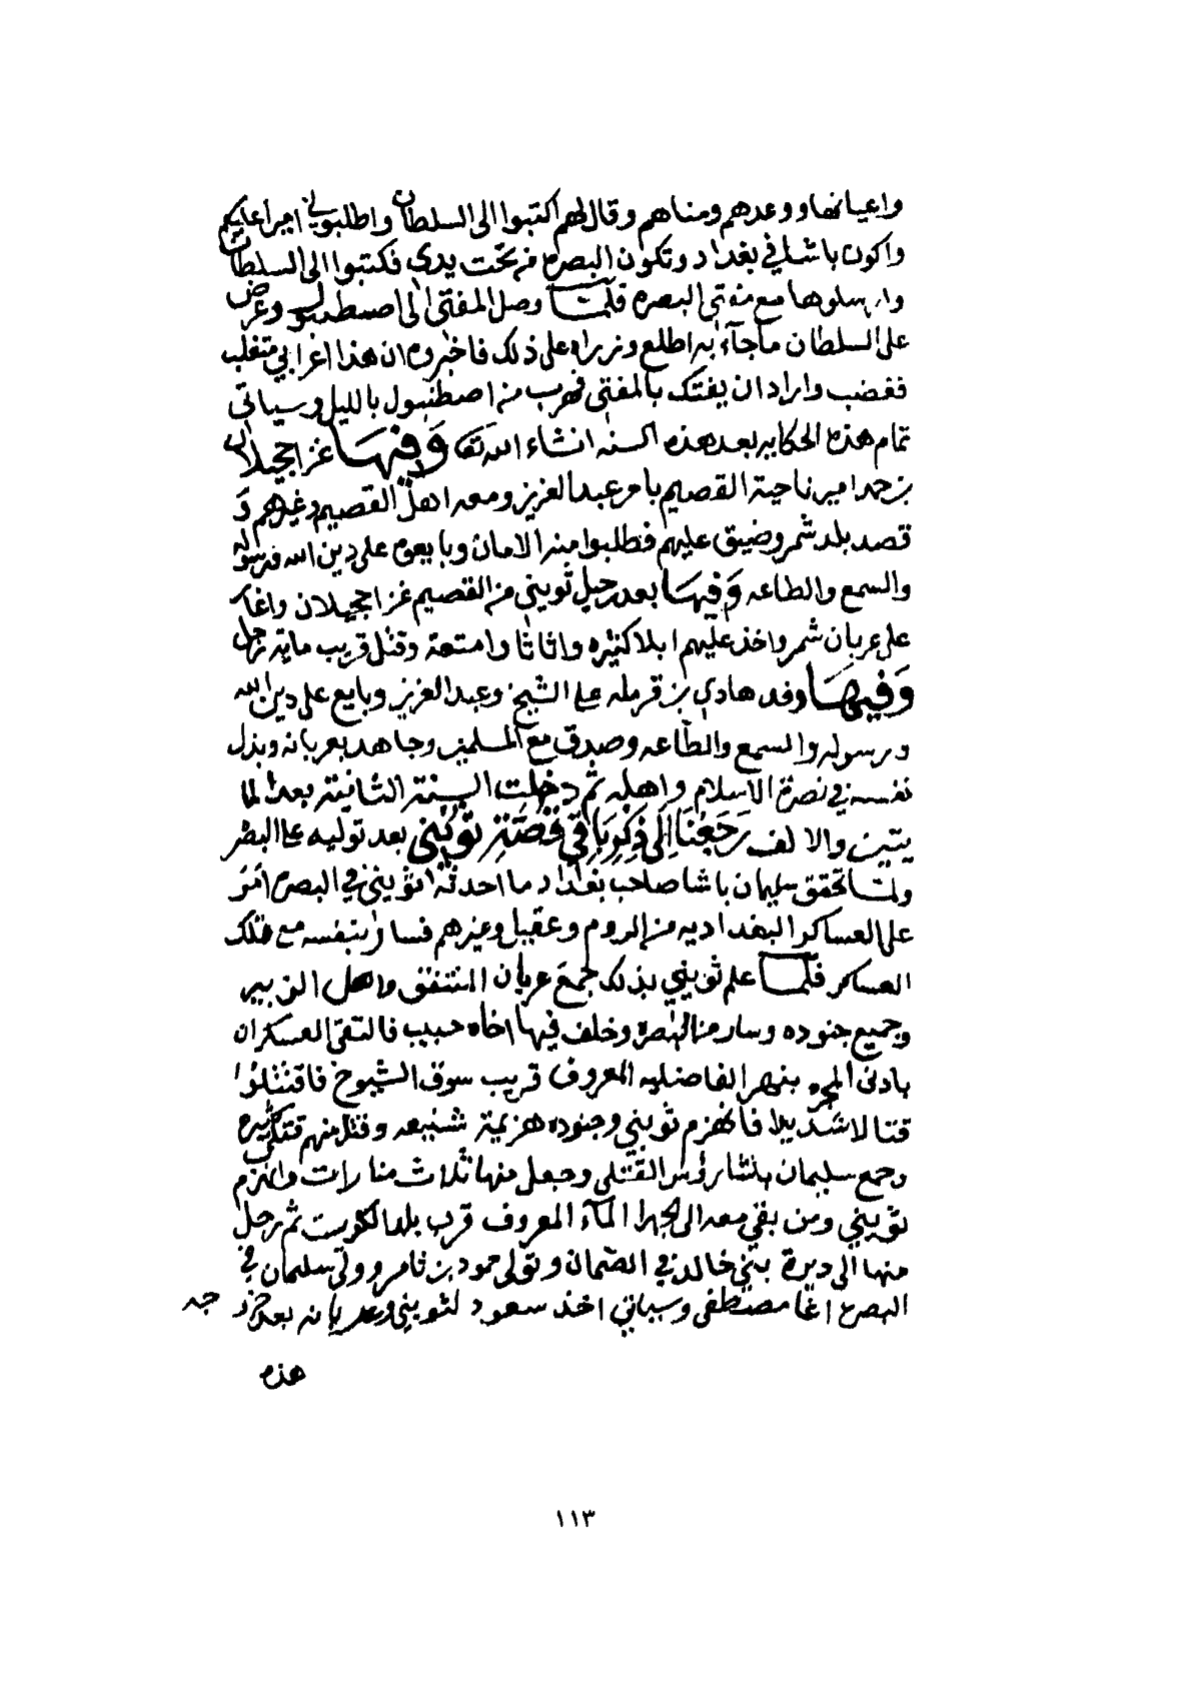 واعيانها ووعدهم ومناهم وقال لهم اكتبوا الى السلطان واطلبوني اميرا عليكم
واكون باشا في بغداد وتكون البصره من تحت يدى فكتبوا الى السلطان
وارسلوها مع مفتى البصره فلما وصل المفتى الى اصطنبول وعرض
على السلطان ماجآء به اطلع وزراه على ذلك فاخبروه ان هذا اعرابي متغلب
فغضب واراد ان يفتك بالمفتى فهرب من اصطنبول بالليل وسياتى
تمام هذه الحكايه بعد هذه السنه انشاء الله تعا وفيها غزا حجيلان
بن حمد امير ناحية القصيم بامر عبد العزيز ومعه اهل القصيم وغيرهم و
قصد بلد شمر وضيق عليهم فطلبوا منه الامان وبايعوه على دين الله ورسوله
والسمع والطاعه وفيها بعد رحيل ثويني من القصيم غزا حجيلان واغار
على عربان شمر واخذ عليهم ابلا كثيره واثاثا وامتعة وقتل قريب ماية رجل
وفيها وفد هادي بن قرمله على الشيخ وعبد العزيز وبايع على دين الله
ورسوله والسمع والطاعه وصدق مع المسلمين وجاهد بعربانه وبذل
نفسه في نصرة الاسلام واهله ثم دخلت السنة الثانية بعد الما
يتين والالف رجعنا الى ذكر باقي قصة ثويني بعد توليه على البصر
ولما تحقق سليمان باشا صاحب بغداد ما احدثه ثويني في البصره امر
على العساكر البغداديه من الروم وعقيل وغيرهم فسار بنفسه مع تلك
العساكر فلما علم ثويني بذلك جمع عربان المنتفق واهل الزبير
وجميع جنوده وسار من البصرة وخلف فيها اخاه حبيب فالتقى العسكران
بادنى المجره بنهر الفاضليه المعروف قريب سوق الشيوخ فاقتتلوا
قتالا شديدا فانهزم ثويني وجنوده هزيمة شنيعه وقتل منهم قتلى كثيره
وجمع سليمان باشا رؤس القتلى وجعل منها ثلاث منارات وانهزم
ثويني ومن بقي معه الى الجهرا المآء المعروف قرب بلد الكويت ثم رحل
منها الى ديرة بني خالد في الصمان وتولى حمود بن ثامر وولى سليمان في
البصره اغا مصطفى وسياتي اخذ سعود لثويني وعربانه بعد خروجه
هذه
١١٣